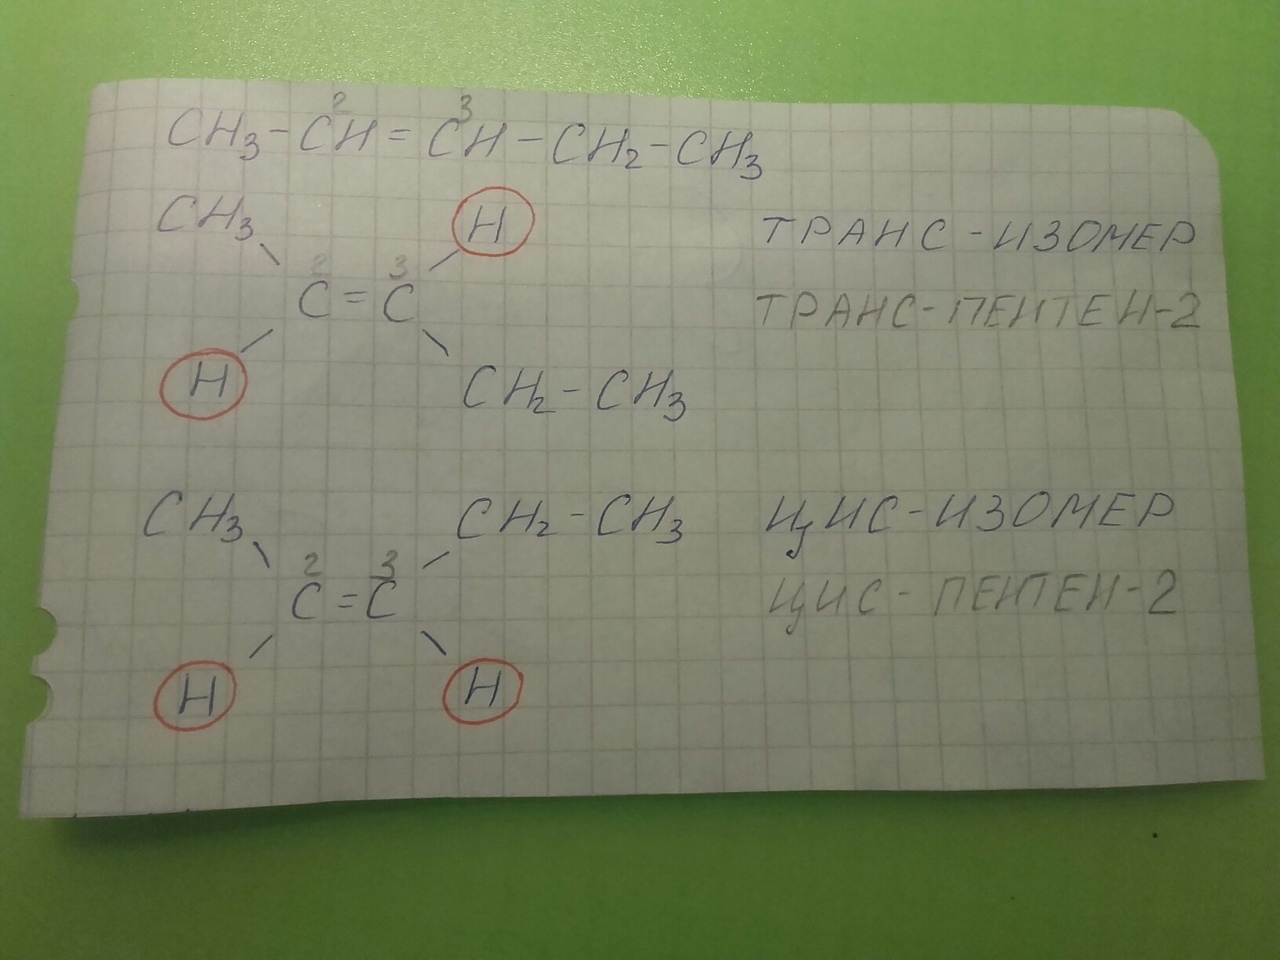 CH₃-CH=CH-CH₂-CH₃
2 3
CH₃ H
2 3
C=C
H CH₂-CH₃
ТРАНС-ИЗОМЕР
ТРАНС-ПЕНТЕН-2
CH₃ CH₂-CH₃
2 3
C=C
H H
ЦИС-ИЗОМЕР
ЦИС-ПЕНТЕН-2